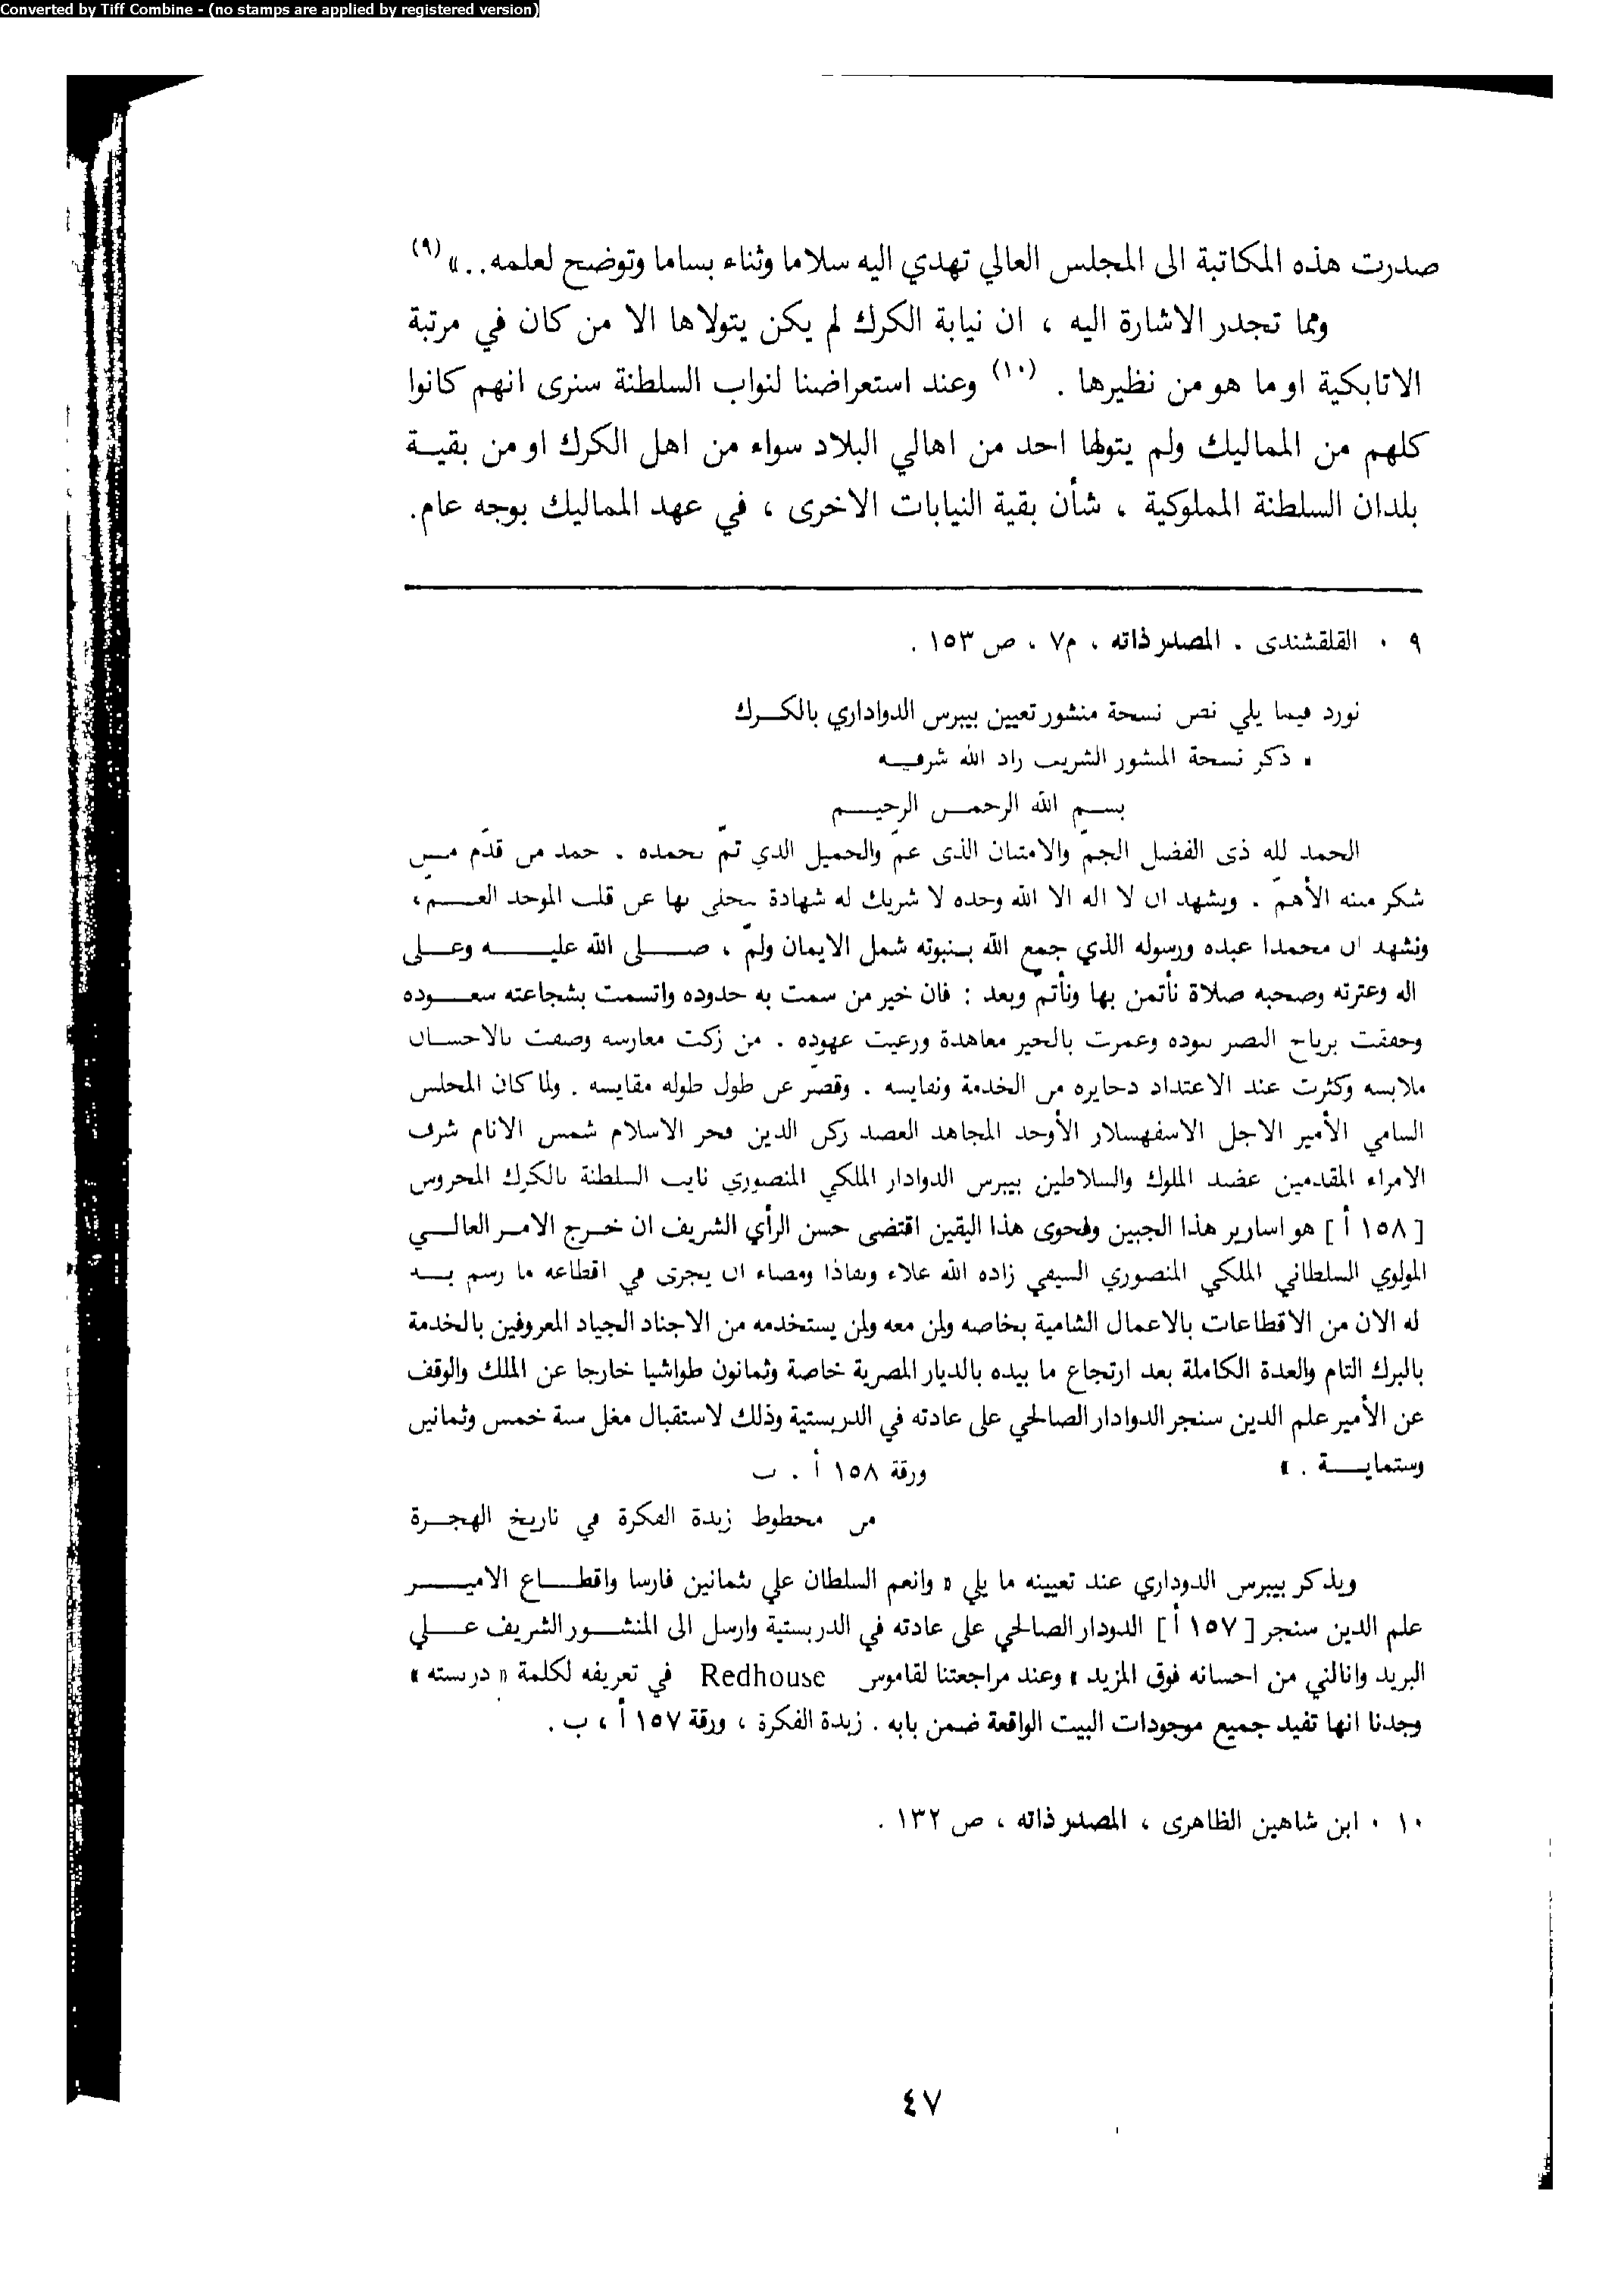 Converted by Tiff Combine - (no stamps are applied by registered version)
صدرت هذه المكاتبة الى المجلس العالي تهدي اليه سلاما وثناء بساما وتوضح لعلمه..» (٩)
ومما تجدر الاشارة اليه ، ان نيابة الكرك لم يكن يتولاها الا من كان في مرتبة
الاتابكية او ما هو من نظيرها . (١٠) وعند استعراضنا لنواب السلطنة سنرى انهم كانوا
كلهم من المماليك ولم يتولها احد من اهالي البلاد سواء من اهل الكرك او من بقيـة
بلدان السلطنة المملوكية ، شأن بقية النيابات الاخرى ، في عهد المماليك بوجه عام.
٩ . القلقشندى . المصدر ذاته ، م٧ ، ص ١٥٣ .
نورد فيما يلي نص نسخة منشور تعيين بيبرس الدواداري بالكـرك
« ذكر نسحة المنشور الشريف زاد الله شرفـه
بسـم الله الرحمـن الرحيـم
الحمد لله ذى الفضل الجمّ والامتنان الذى عمّ والجميل الذي تمّ بحمده . حمد من قدّم مـن
شكر مننه الأهمّ . ويشهد ان لا اله الا الله وحده لا شريك له شهادة يجلى بها عن قلب الموحد الغـم،
ونشهد ان محمدا عبده ورسوله الذي جمع الله بـنبوته شمل الايمان ولمّ ، صـلى الله عليـه وعـلى
اله وعترته وصحبه صلاة نأتمن بها ونأتمّ وبعد : فان خير من سمت به حدوده واتسمت بشجاعته سعـوده
وخفقت برياح النصر بنوده وعمرت بالخير معاهدة ورعيت عهوده . من زكت مغارسه وصفت بالاحسـان
ملابسه وكثرت عند الاعتداد دخايره من الخدمة ونفايسه . وقصّر عن طول طوله مقايسه . ولما كان المجلس
السامي الأمير الاجل الاسفهسلار الأوحد المجاهد العضد ركن الدين فخر الاسلام شمس الانام شرف
الامراء المقدمين عضد الملوك والسلاطين بيبرس الدوادار الملكي المنصوري نايب السلطنة بالكرك المحروس
[ ١٥٨ أ ] هو اسارير هذا الجبين وفحوى هذا اليقين اقتضى حسن الرأي الشريف ان خـرج الامـر العالـي
المولوي السلطاني الملكي المنصوري السيفي زاده الله علاء ونفاذا ومضاء ان يجرى في اقطاعه ما رسم بـه
له الان من الاقطاعات بالاعمال الشامية بخاصه ولمن معه ولمن يستخدمه من الاجناد الجياد المعروفين بالخدمة
بالبرك التام والعدة الكاملة بعد ارتجاع ما بيده بالديار المصرية خاصة وثمانون طواشيا خارجا عن الملك والوقف
عن الأمير علم الدين سنجر الدوادار الصالحي على عادته في الدربستية وذلك لاستقبال مغل سنة خمس وثمانين
وستمايـة . »
ورقة ١٥٨ أ . ب
من مخطوط زبدة الفكرة في تاريخ الهجـرة
ويذكر بيبرس الدوداري عند تعيينه ما يلي « وانعم السلطان علي بثمانين فارسا واقطـاع الاميـر
علم الدين سنجر [ ١٥٧ أ ] الدودار الصالحي على عادته في الدربستية وارسل الى المنشـور الشريف عـلي
البريد وانالني من احسانه فوق المزيد » وعند مراجعتنا لقاموس Redhouse في تعريفه لكلمة « دربسته »
وجدنا انها تفيد جميع موجودات البيت الواقعة ضمن بابه . زبدة الفكرة ، ورقة ١٥٧ أ ، ب .
١٠ . ابن شاهين الظاهرى ، المصدر ذاته ، ص ١٣٢ .
٤٧